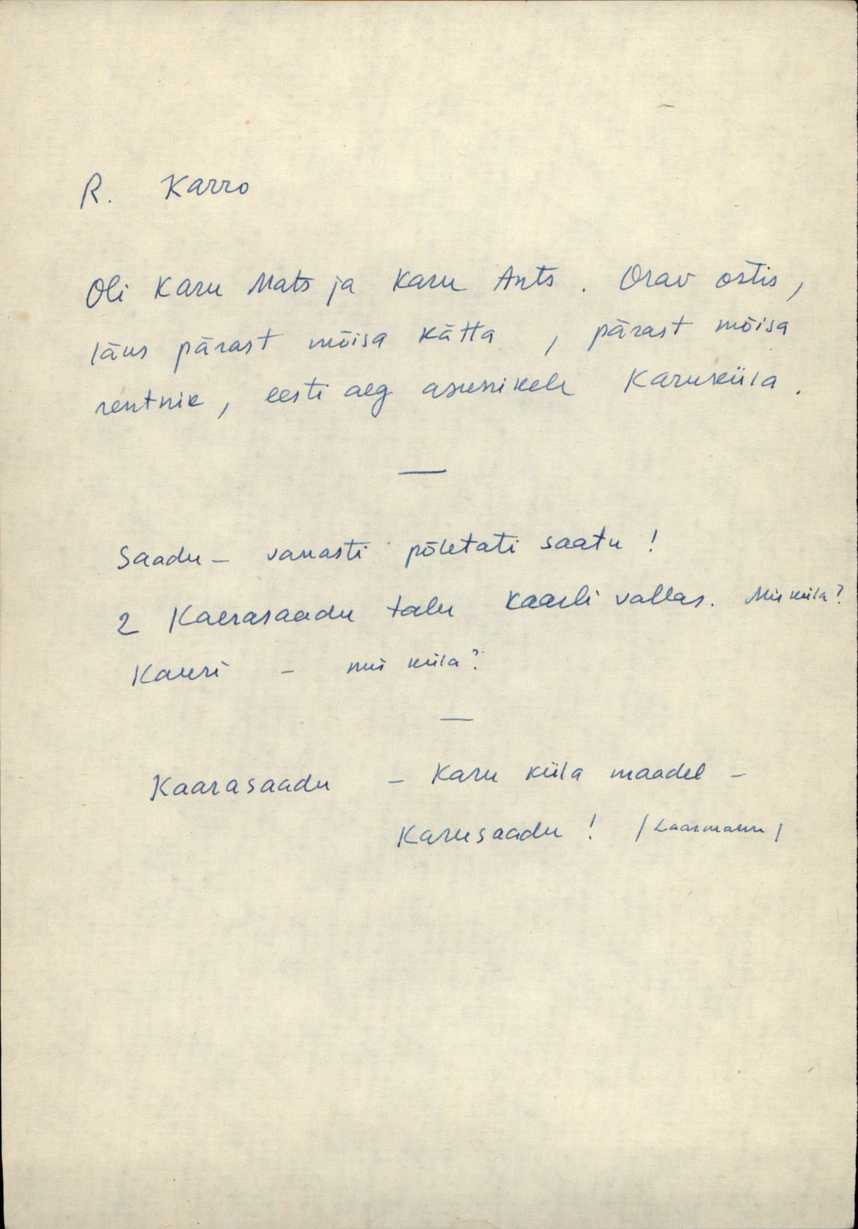 R. Karro
Oli Karu Mats ja Karu Ants. Orav ostis,
läns pärast mõisa kätta, pärast mõisa
rentnik, eesti aeg asunikele Karuküla.
—
Saadu – vanasti põletati saatu!
2 Kaerasaadu talu Kaarli vallas. Mis küla?
Kauri – mis küla?
—
Kaarasaadu – Karu küla maadel –
Karusaadu! /Laarmann/